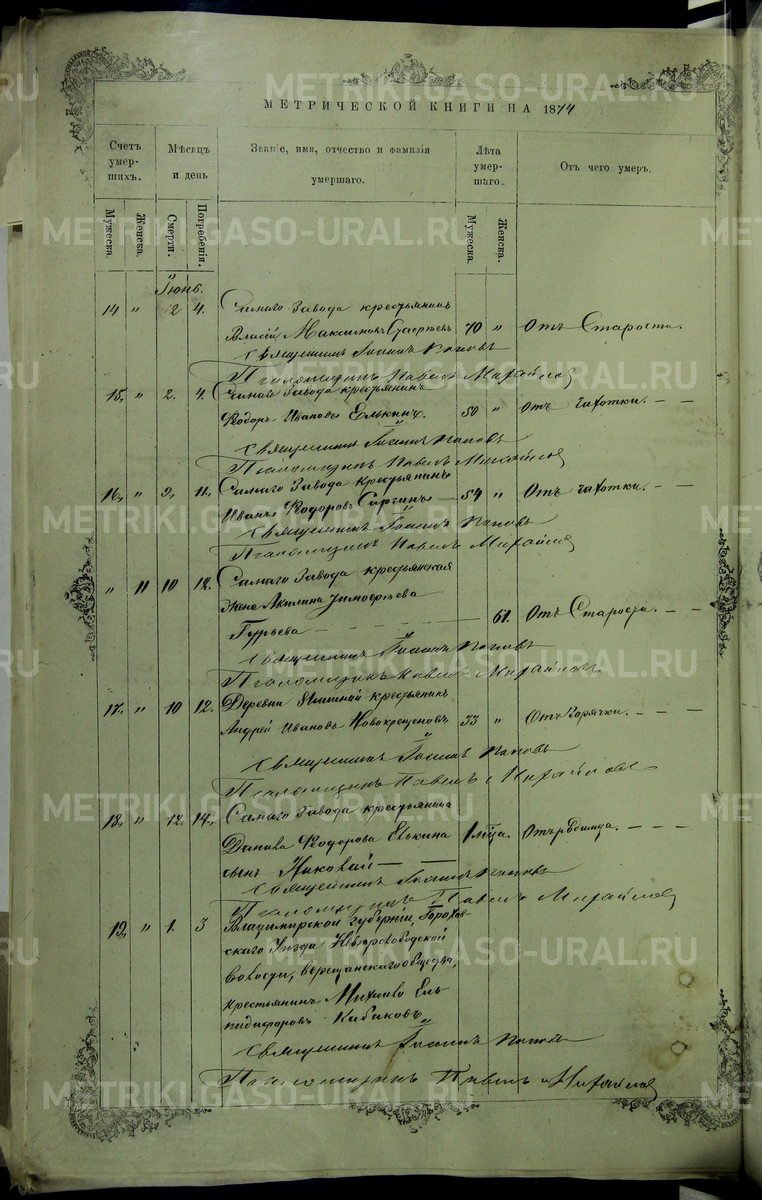 МЕТРИЧЕСКОЙ КНИГИ НА 1874
Счетъ умер-шихъ.
Мѣсяцъ и день
Званіе, имя, отчество и фамилія умершаго.
Лѣта умер-шаго.
Отъ чего умеръ.
Мужеска.
Женска.
Смерти.
Погребенія.
Мужеска.
Женска.
Іюнь.
14 „ 2 4. Самаго Завода крестьянинъ
Власій Максимовъ 70 „ Отъ Старости.
Священникъ Іоаннъ Поповъ
Псаломщикъ Павелъ Михайлов
15, „ 2. 4. Самаго Завода крестьянинъ
Ѳедоръ Ивановъ Елькинъ. 50 „ Отъ чахотки. — —
Священникъ Іоаннъ Поповъ
Псаломщикъ Павелъ Михайлов
16, „ 9, 11, Самаго Завода Крестьянинъ
Иванъ Ѳедоровъ Сергинъ — 54 „ Отъ чахотки. — —
Священникъ Іоаннъ Поповъ
Псаломщикъ Павелъ Михайлов
„ 11 10 12. Самаго Завода крестьянская
Жена Акилина
Гурьева — — — 61. Отъ Старости. — —
Священникъ Іоаннъ Поповъ
Псаломщикъ Павелъ Михайловъ
17, „ 10 12. Деревни крестьянинъ
Андрей Ивановъ Новокрещеновъ 33 „ Отъ Горячки. — — —
Священникъ Іоаннъ Поповъ
Псаломщикъ Павелъ Михайловъ
18, „ 12. 14, Самаго Завода крестьянина
Данила Ѳедорова Елькина 1 мца. Отъ Родимца. — — —
сынъ Николай — —
Священникъ Іоаннъ Поповъ
Псаломщикъ Павелъ Михайлов
19, „ 1. 3 Владимирской губерніи, Горохов-
скаго Уѣзда
волости, общества,
крестьянинъ Михаило Ель-
пидифоровъ Кабаковъ
Священникъ Іоаннъ Поповъ
Псаломщикъ Павелъ Михайлов
METRIKI.GASO-URAL.RU